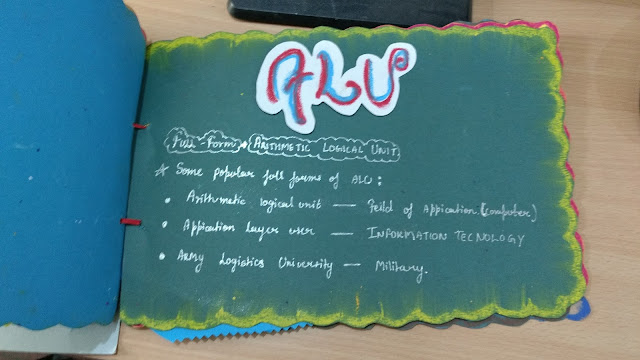 ALU
Full-Form → ARITHMETIC LOGICAL UNIT
☆ Some popular full forms of ALU:
• Arithmetic logical unit — Feild of Appication. (Computer)
• Appication layer user — INFORMATION TECNOLOGY
• ARMY Logistics University — Military.